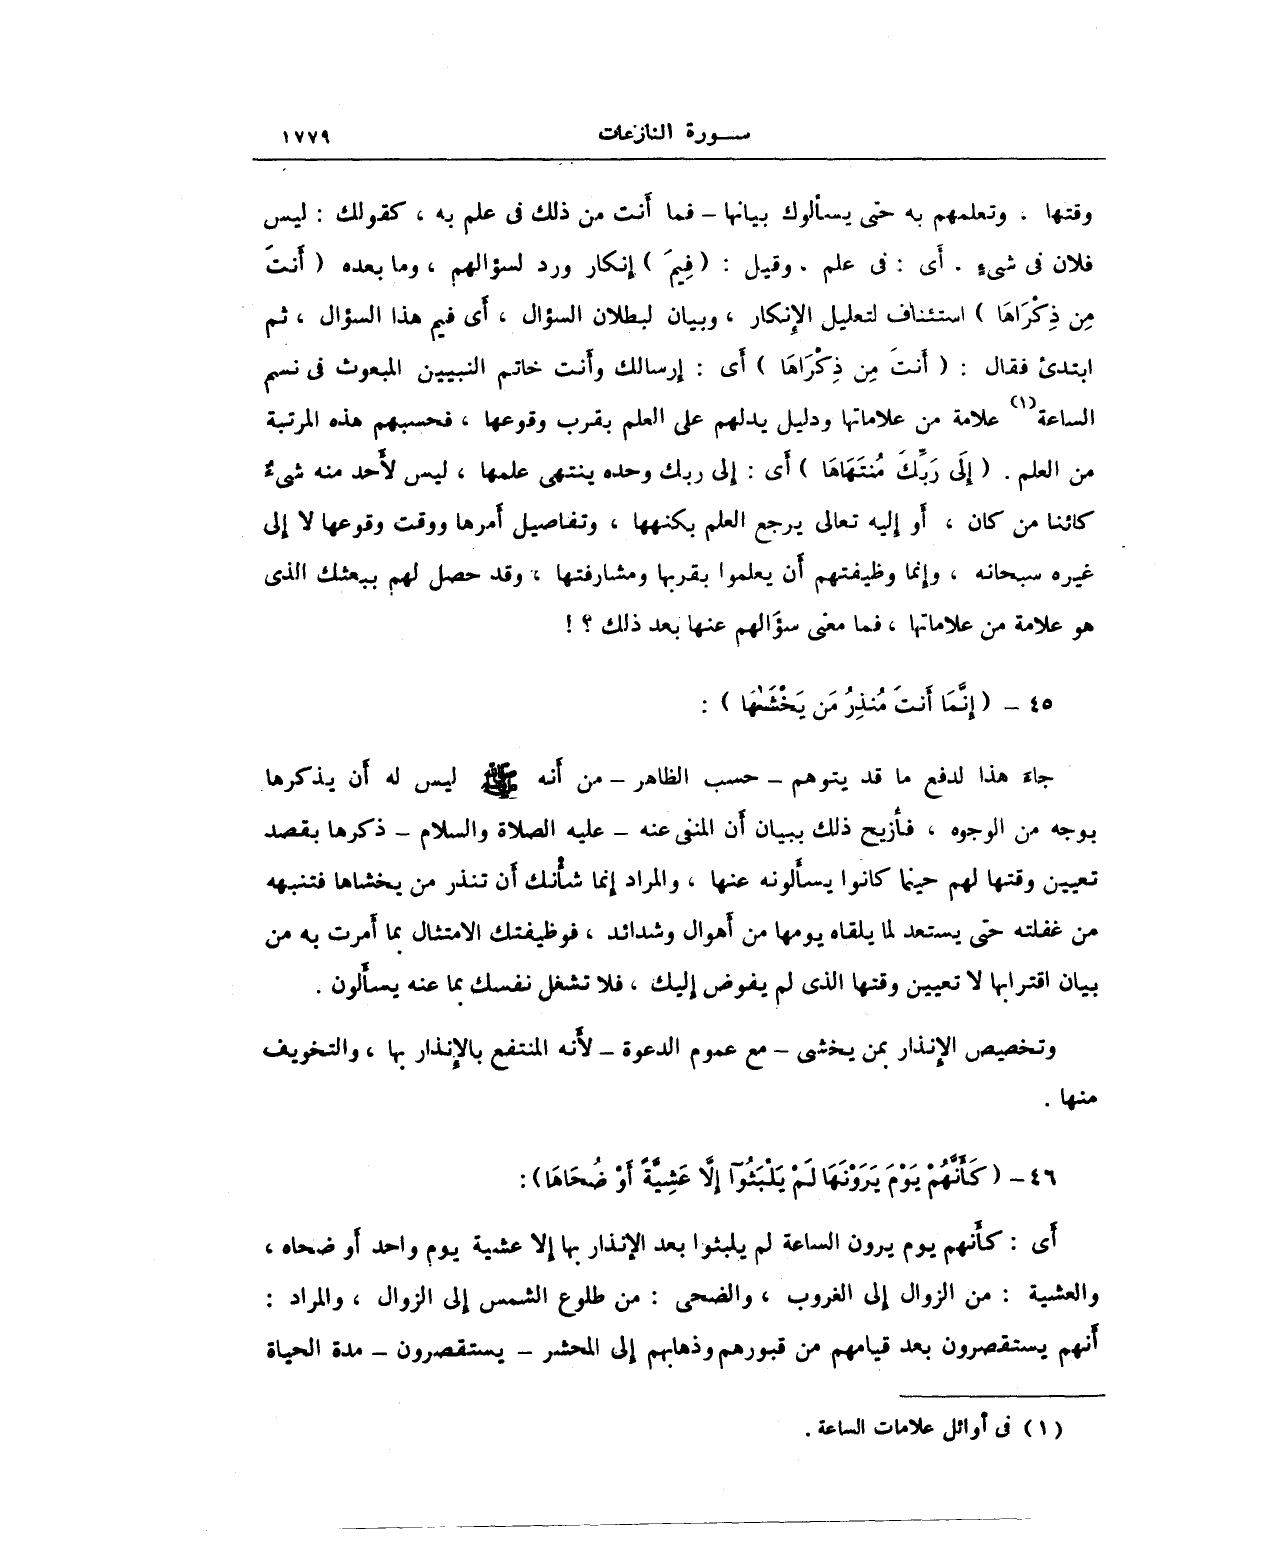 سورة النازعات ١٧٧٩
وقتها ، وتعلمهم به حتى يسألوك بيانها – فما أنت من ذلك فى علم به ، كقولك : ليس
فلان فى شىء . أى : فى علم . وقيل : ( فِيمَ ) إنكار ورد لسؤالهم ، وما بعده ( أَنتَ
مِن ذِكْرَاهَا ) استئناف لتعليل الإنكار ، وبيان لبطلان السؤال ، أى فيم هذا السؤال ، ثم
ابتدئ فقال : ( أَنتَ مِن ذِكْرَاهَا ) أى : إرسالك وأنت خاتم النبيين المبعوث فى نسم
الساعة(١) علامة من علاماتها ودليل يدلهم على العلم بقرب وقوعها ، فحسبهم هذه المرتبة
من العلم . ( إِلَى رَبِّكَ مُنتَهَاهَا ) أى : إلى ربك وحده ينتهى علمها ، ليس لأحد منه شىءٌ
كائنا من كان ، أو إليه تعالى يرجع العلم بكنهها ، وتفاصيل أمرها ووقت وقوعها لا إلى
غيره سبحانه ، وإنما وظيفتهم أن يعلموا بقربها ومشارفتها ، وقد حصل لهم ببعثك الذى
هو علامة من علاماتها ، فما معنى سؤالهم عنها بعد ذلك ؟ !
٤٥ – ( إِنَّمَا أَنتَ مُنذِرُ مَن يَخْشَىٰهَا ) :
جاء هذا لدفع ما قد يتوهم – حسب الظاهر – من أنه ﷺ ليس له أن يذكرها
بوجه من الوجوه ، فأزيح ذلك ببيان أن المنفى عنه – عليه الصلاة والسلام – ذكرها بقصد
تعيين وقتها لهم حينما كانوا يسألونه عنها ، والمراد إنما شأنك أن تنذر من يخشاها فتنبهه
من غفلته حتى يستعد لما يلقاه يومها من أهوال وشدائد ، فوظيفتك الامتثال بما أمرت به من
بيان اقترابها لا تعيين وقتها الذى لم يفوض إليك ، فلا تشغل نفسك بما عنه يسألون .
وتخصيص الإنذار بمن يخشى – مع عموم الدعوة – لأنه المنتفع بالإنذار بها ، والتخويف
منها .
٤٦ – ( كَأَنَّهُمْ يَوْمَ يَرَوْنَهَا لَمْ يَلْبَثُوٓا إِلَّا عَشِيَّةً أَوْ ضُحَاهَا ) :
أى : كأنهم يوم يرون الساعة لم يلبثوا بعد الإنذار بها إلا عشية يوم واحد أو ضحاه ،
والعشية : من الزوال إلى الغروب ، والضحى : من طلوع الشمس إلى الزوال ، والمراد :
أنهم يستقصرون بعد قيامهم من قبورهم وذهابهم إلى المحشر – يستقصرون – مدة الحياة
( ١ ) فى أوائل علامات الساعة .